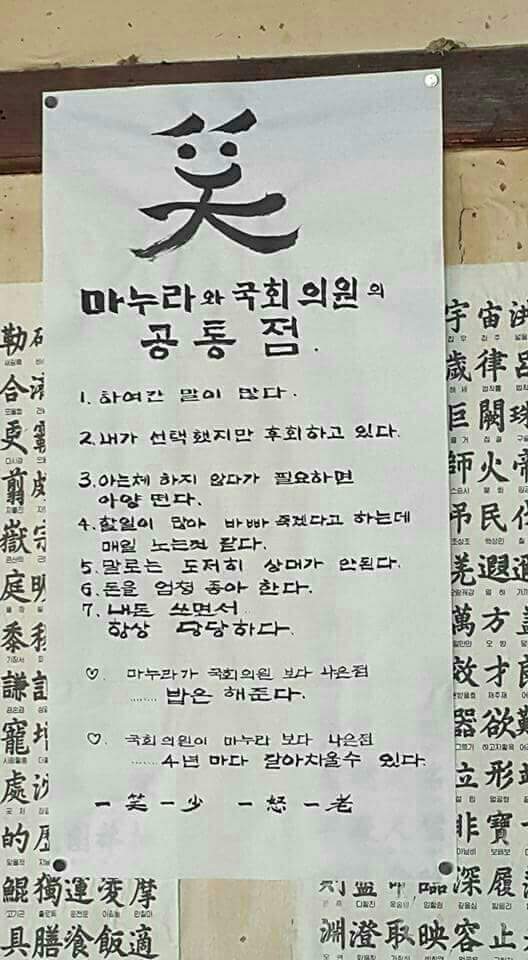 笑
마누라와 국회의원의
공통점.
1. 하여간 말이 많다.
2. 내가 선택했지만 후회하고 있다.
3. 아는체 하지 않다가 필요하면
아양 떤다.
4. 할일이 많아 바빠 죽겠다고 하는데
매일 노는것 같다.
5. 말로는 도저히 상대가 안된다.
6. 돈을 엄청 좋아 한다.
7. 내돈 쓰면서
항상 당당하다.
♡. 마누라가 국회의원 보다 나은점
........ 밥은 해준다.
♡. 국회의원이 마누라 보다 나은점
........ 4년 마다 갈아치울수 있다.
一笑一少 一怒一老
勒
合
更
翦
嶽
庭
黍
謙
寵
處
的
鯤獨運凌摩
具膳飡飯適
宇宙
歲律呂
巨闕
師火帝
弔民
羌遐
萬方
效才
器欲
立形
非寶
深履
淵澄取映容止